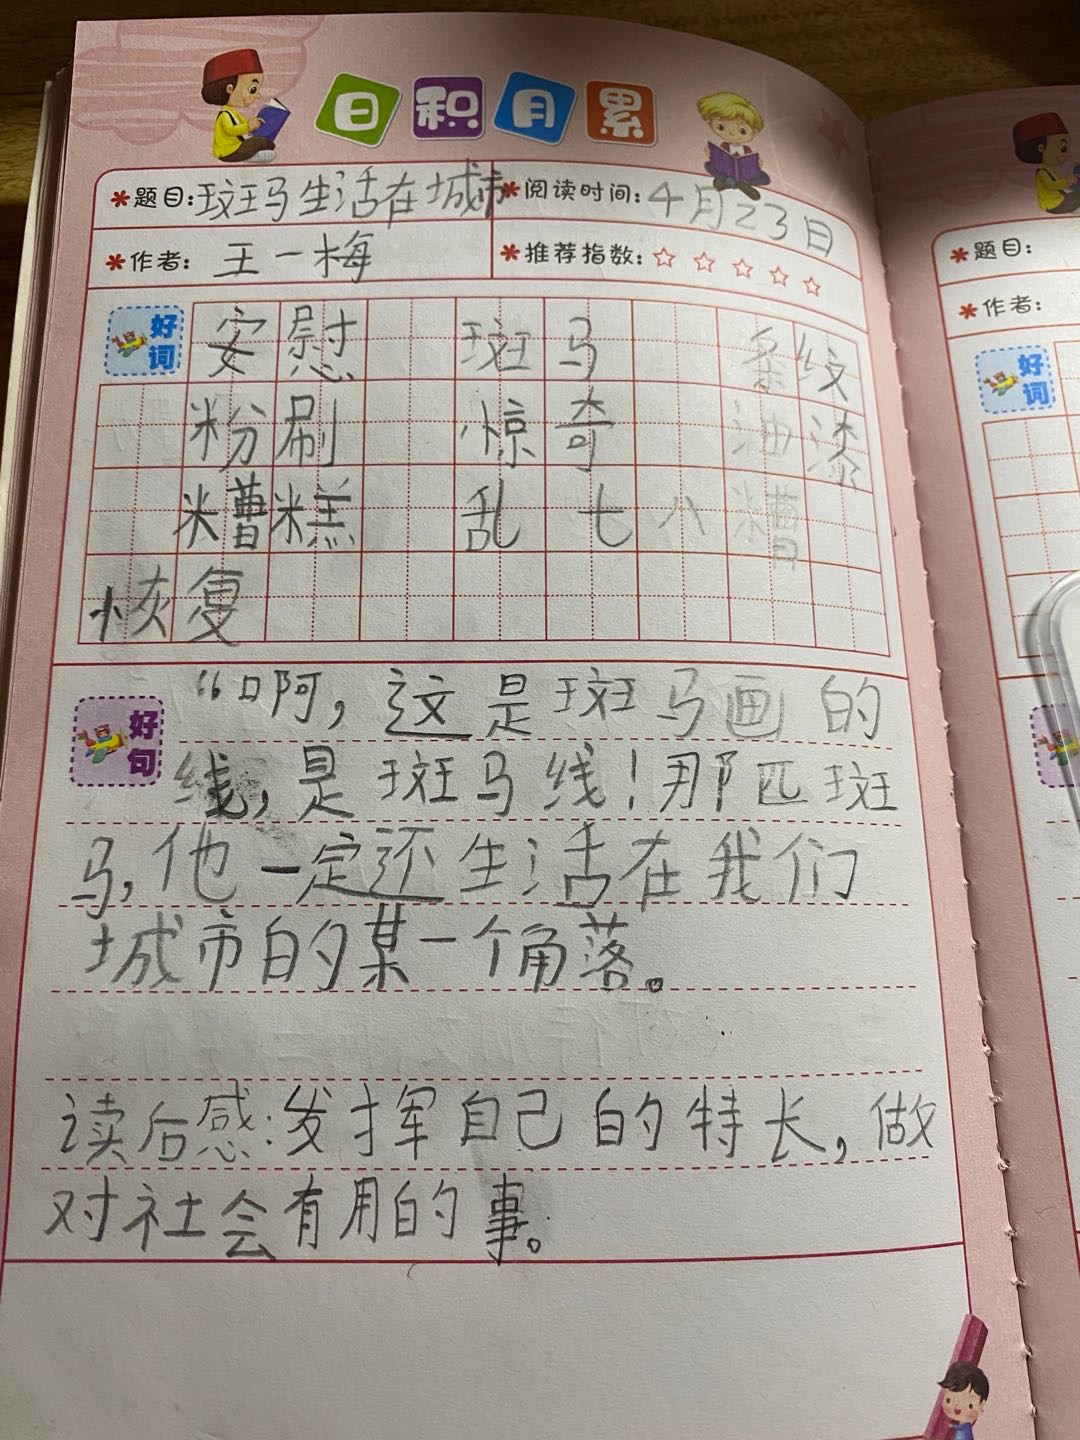 日积月累
题目：斑马生活在城市 阅读时间：4月23日
作者：王一梅 推荐指数：☆☆☆☆☆
好词 安慰 斑马 条纹
粉刷 惊奇 油漆
糟糕 乱七八糟
恢复
好句 “啊，这是斑马画的
线，是斑马线！那匹斑
马，他一定还生活在我们
城市的某一个角落。
读后感：发挥自己的特长，做
对社会有用的事。
题目：
作者：
好词